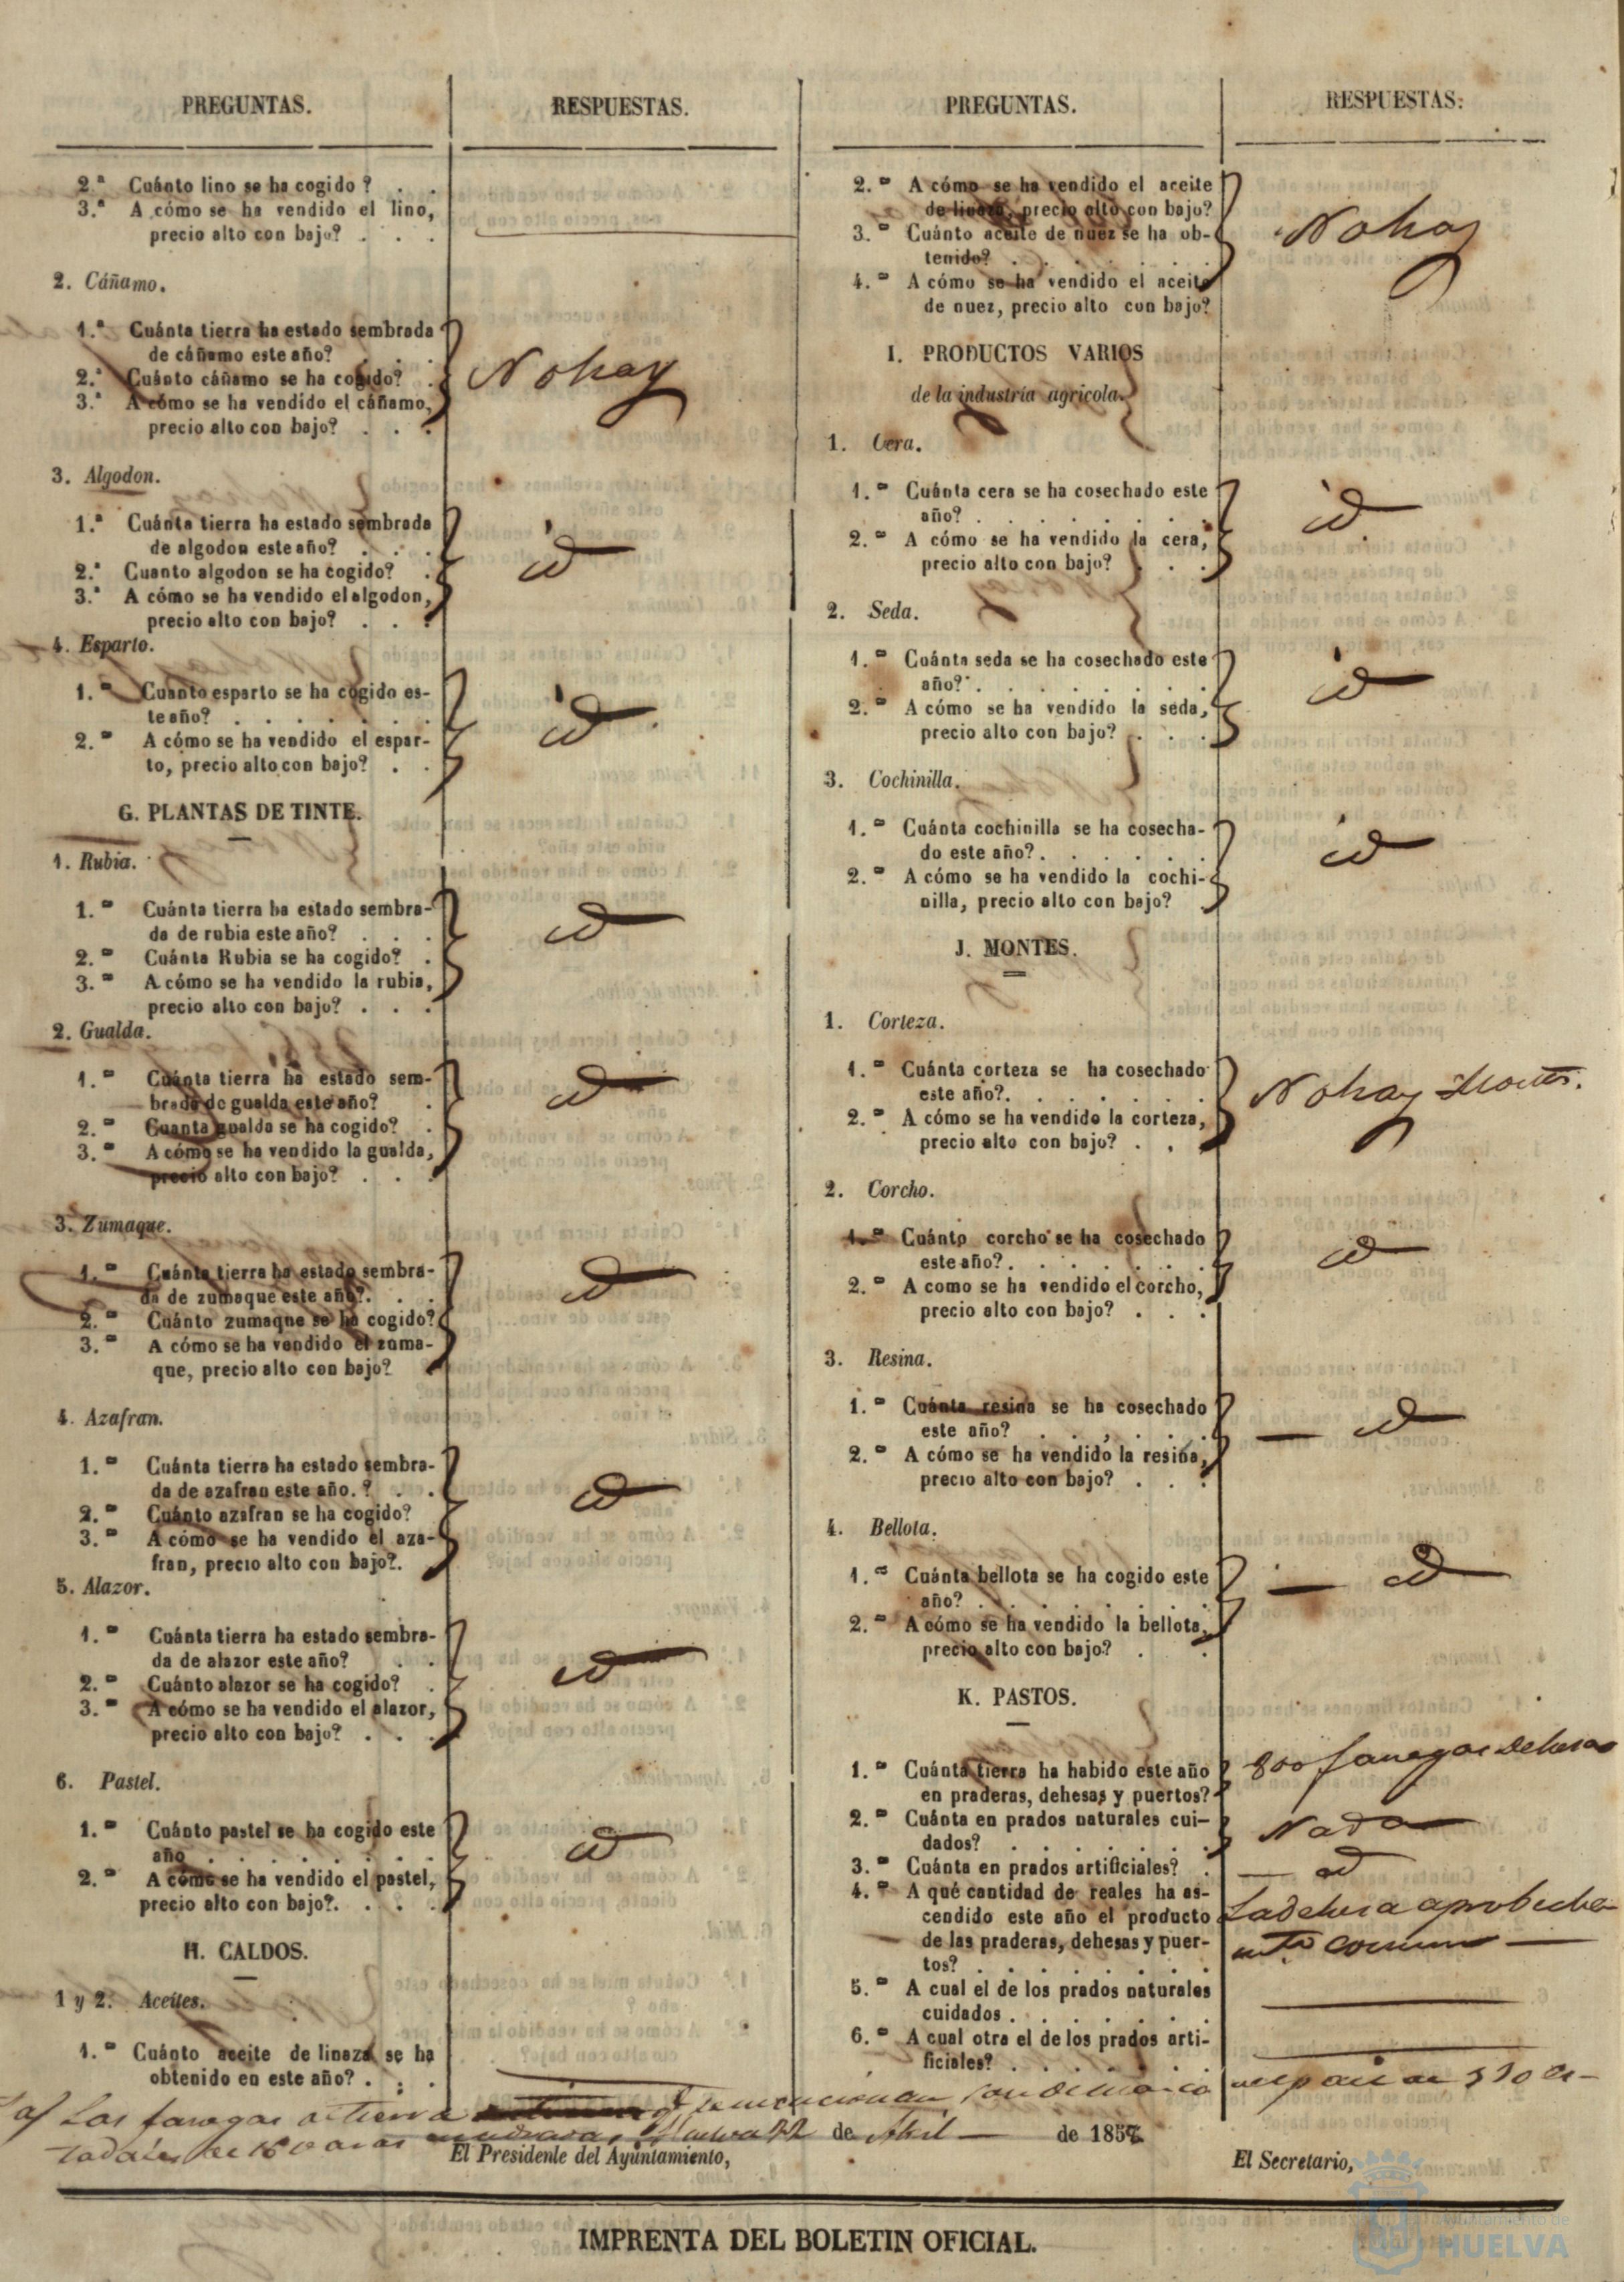 PREGUNTAS.
RESPUESTAS.
2.ª Cuánto lino se ha cogido ? . .
3.ª A cómo se ha vendido el lino,
precio alto con bajo? . . .
2. Cáñamo.
1.ª Cuánta tierra ha estado sembrada
de cáñamo este año? . . .
2.ª Cuánto cáñamo se ha cogido? .
3.ª A cómo se ha vendido el cáñamo,
precio alto con bajo? . . .
No hay
3. Algodon.
1.ª Cuánta tierra ha estado sembrada
de algodon este año? . . .
2.ª Cuanto algodon se ha cogido? .
3.ª A cómo se ha vendido el algodon,
precio alto con bajo? . . .
id
4. Esparto.
1.ª Cuanto esparto se ha cogido es-
te año? . . . . . . .
2.ª A cómo se ha vendido el espar-
to, precio alto con bajo? . .
id
G. PLANTAS DE TINTE.
1. Rubia.
1.ª Cuánta tierra ha estado sembra-
da de rubia este año? . . .
2.ª Cuánta Rubia se ha cogido? .
3.ª A cómo se ha vendido la rubia,
precio alto con bajo? . . .
id
2. Gualda.
1.ª Cuánta tierra ha estado sem-
brada de gualda este año? .
2.ª Cuanta gualda se ha cogido? .
3.ª A cómo se ha vendido la gualda,
precio alto con bajo? . . .
id
3. Zumaque.
1.ª Cuánta tierra ha estado sembra-
da de zumaque este año?. . .
2.ª Cuánto zumaque se ha cogido?
3.ª A cómo se ha vendido el zuma-
que, precio alto con bajo?
id
4. Azafran.
1.ª Cuánta tierra ha estado sembra-
da de azafran este año. ? . .
2.ª Cuánto azafran se ha cogido?
3.ª A cómo se ha vendido el aza-
fran, precio alto con bajo?.
id
5. Alazor.
1.ª Cuánta tierra ha estado sembra-
da de alazor este año? . .
2.ª Cuánto alazor se ha cogido? .
3.ª A cómo se ha vendido el alazor,
precio alto con bajo? . . .
id
6. Pastel.
1.ª Cuánto pastel se ha cogido este
año . . . . . . . .
2.ª A cómo se ha vendido el pastel,
precio alto con bajo?. . . .
id
H. CALDOS.
1 y 2. Aceites.
1.ª Cuánto aceite de linaza se ha
obtenido en este año? . . .
PREGUNTAS.
RESPUESTAS.
2.ª A cómo se ha vendido el aceite
de linaza, precio alto con bajo?
3.ª Cuánto aceite de nuez se ha ob-
tenido? . . . . . . .
4.ª A cómo se ha vendido el aceite
de nuez, precio alto con bajo?
No hay
I. PRODUCTOS VARIOS
de la industria agricola.
1. Cera.
1.ª Cuánta cera se ha cosechado este
año? . . . . . . . .
2.ª A cómo se ha vendido la cera,
precio alto con bajo? . . .
id
2. Seda.
1.ª Cuánta seda se ha cosechado este
año? . . . . . . . .
2.ª A cómo se ha vendido la seda,
precio alto con bajo? . . .
id
3. Cochinilla.
1.ª Cuánta cochinilla se ha cosecha-
do este año? . . . . . .
2.ª A cómo se ha vendido la cochi-
nilla, precio alto con bajo? .
id
J. MONTES.
1. Corteza.
1.ª Cuánta corteza se ha cosechado
este año?. . . . . . .
2.ª A cómo se ha vendido la corteza,
precio alto con bajo? . . .
No hay Montes.
2. Corcho.
1.ª Cuánto corcho se ha cosechado
este año? . . . . . . .
2.ª A como se ha vendido el corcho,
precio alto con bajo? . . .
id
3. Resina.
1.ª Cuánta resina se ha cosechado
este año? . . . . . .
2.ª A cómo se ha vendido la resina,
precio alto con bajo? . . .
— id
4. Bellota.
1.ª Cuánta bellota se ha cogido este
año? . . . . . . . .
2.ª A cómo se ha vendido la bellota,
precio alto con bajo? . .
— id
K. PASTOS.
1.ª Cuánta tierra ha habido este año
en praderas, dehesas y puertos?
800 fanegas dehesas
2.ª Cuánta en prados naturales cui-
dados? . . . . . . .
Nada
3.ª Cuánta en prados artificiales? .
— id
4.ª A qué cantidad de reales ha as-
cendido este año el producto
de las praderas, dehesas y puer-
tos? . . . . . . . .
La dehesa aprobecha-
mto comun —
5.ª A cual el de los prados naturales
cuidados . . . . . . .
6.ª A cual otra el de los prados arti-
ficiales? . . . . . . .
Las fanegas de tierra
Huelva 22 de Abril — de 1857
El Presidente del Ayuntamiento,
El Secretario,
IMPRENTA DEL BOLETIN OFICIAL.
Ayuntamiento de
HUELVA